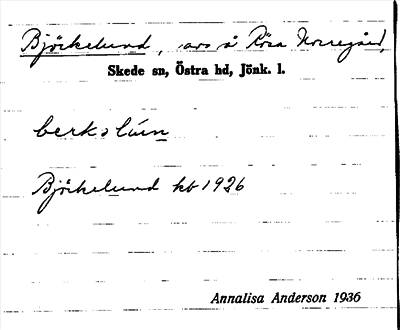 Björkelund, avs å Rösa Norregård,
Skede sn, Östra hd, Jönk. l.
Björkelund kb 1926
Annalisa Anderson 1936